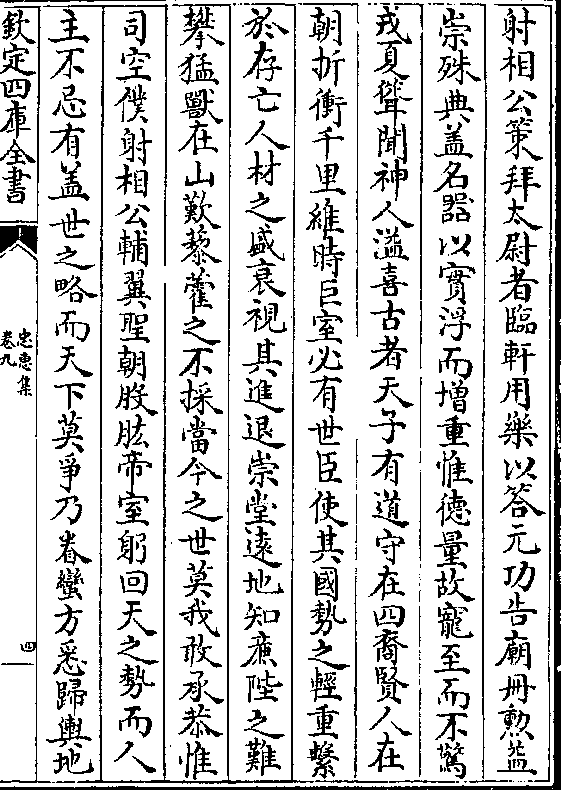 射相公策拜太尉者臨軒用樂以答元功告廟冊勲益
崇殊典盖名器以實浮而增重惟德量故寵至而不驚
戎夏聳聞神人溢喜古者天子有道守在四裔賢人在
朝折衝千里維時巨室必有世臣使其國勢之輕重繫
於存亡人材之盛衰視其進退崇堂遠地知亷陛之難
攀猛獸在山歎藜藿之不採當今之世莫我敢承恭惟
司空僕射相公輔翼聖朝股肱帝室躬回天之勢而人
主不忌有盖世之略而天下莫爭乃眷蠻方悉歸輿地
欽定四庫全書
忠惠集
卷九
四